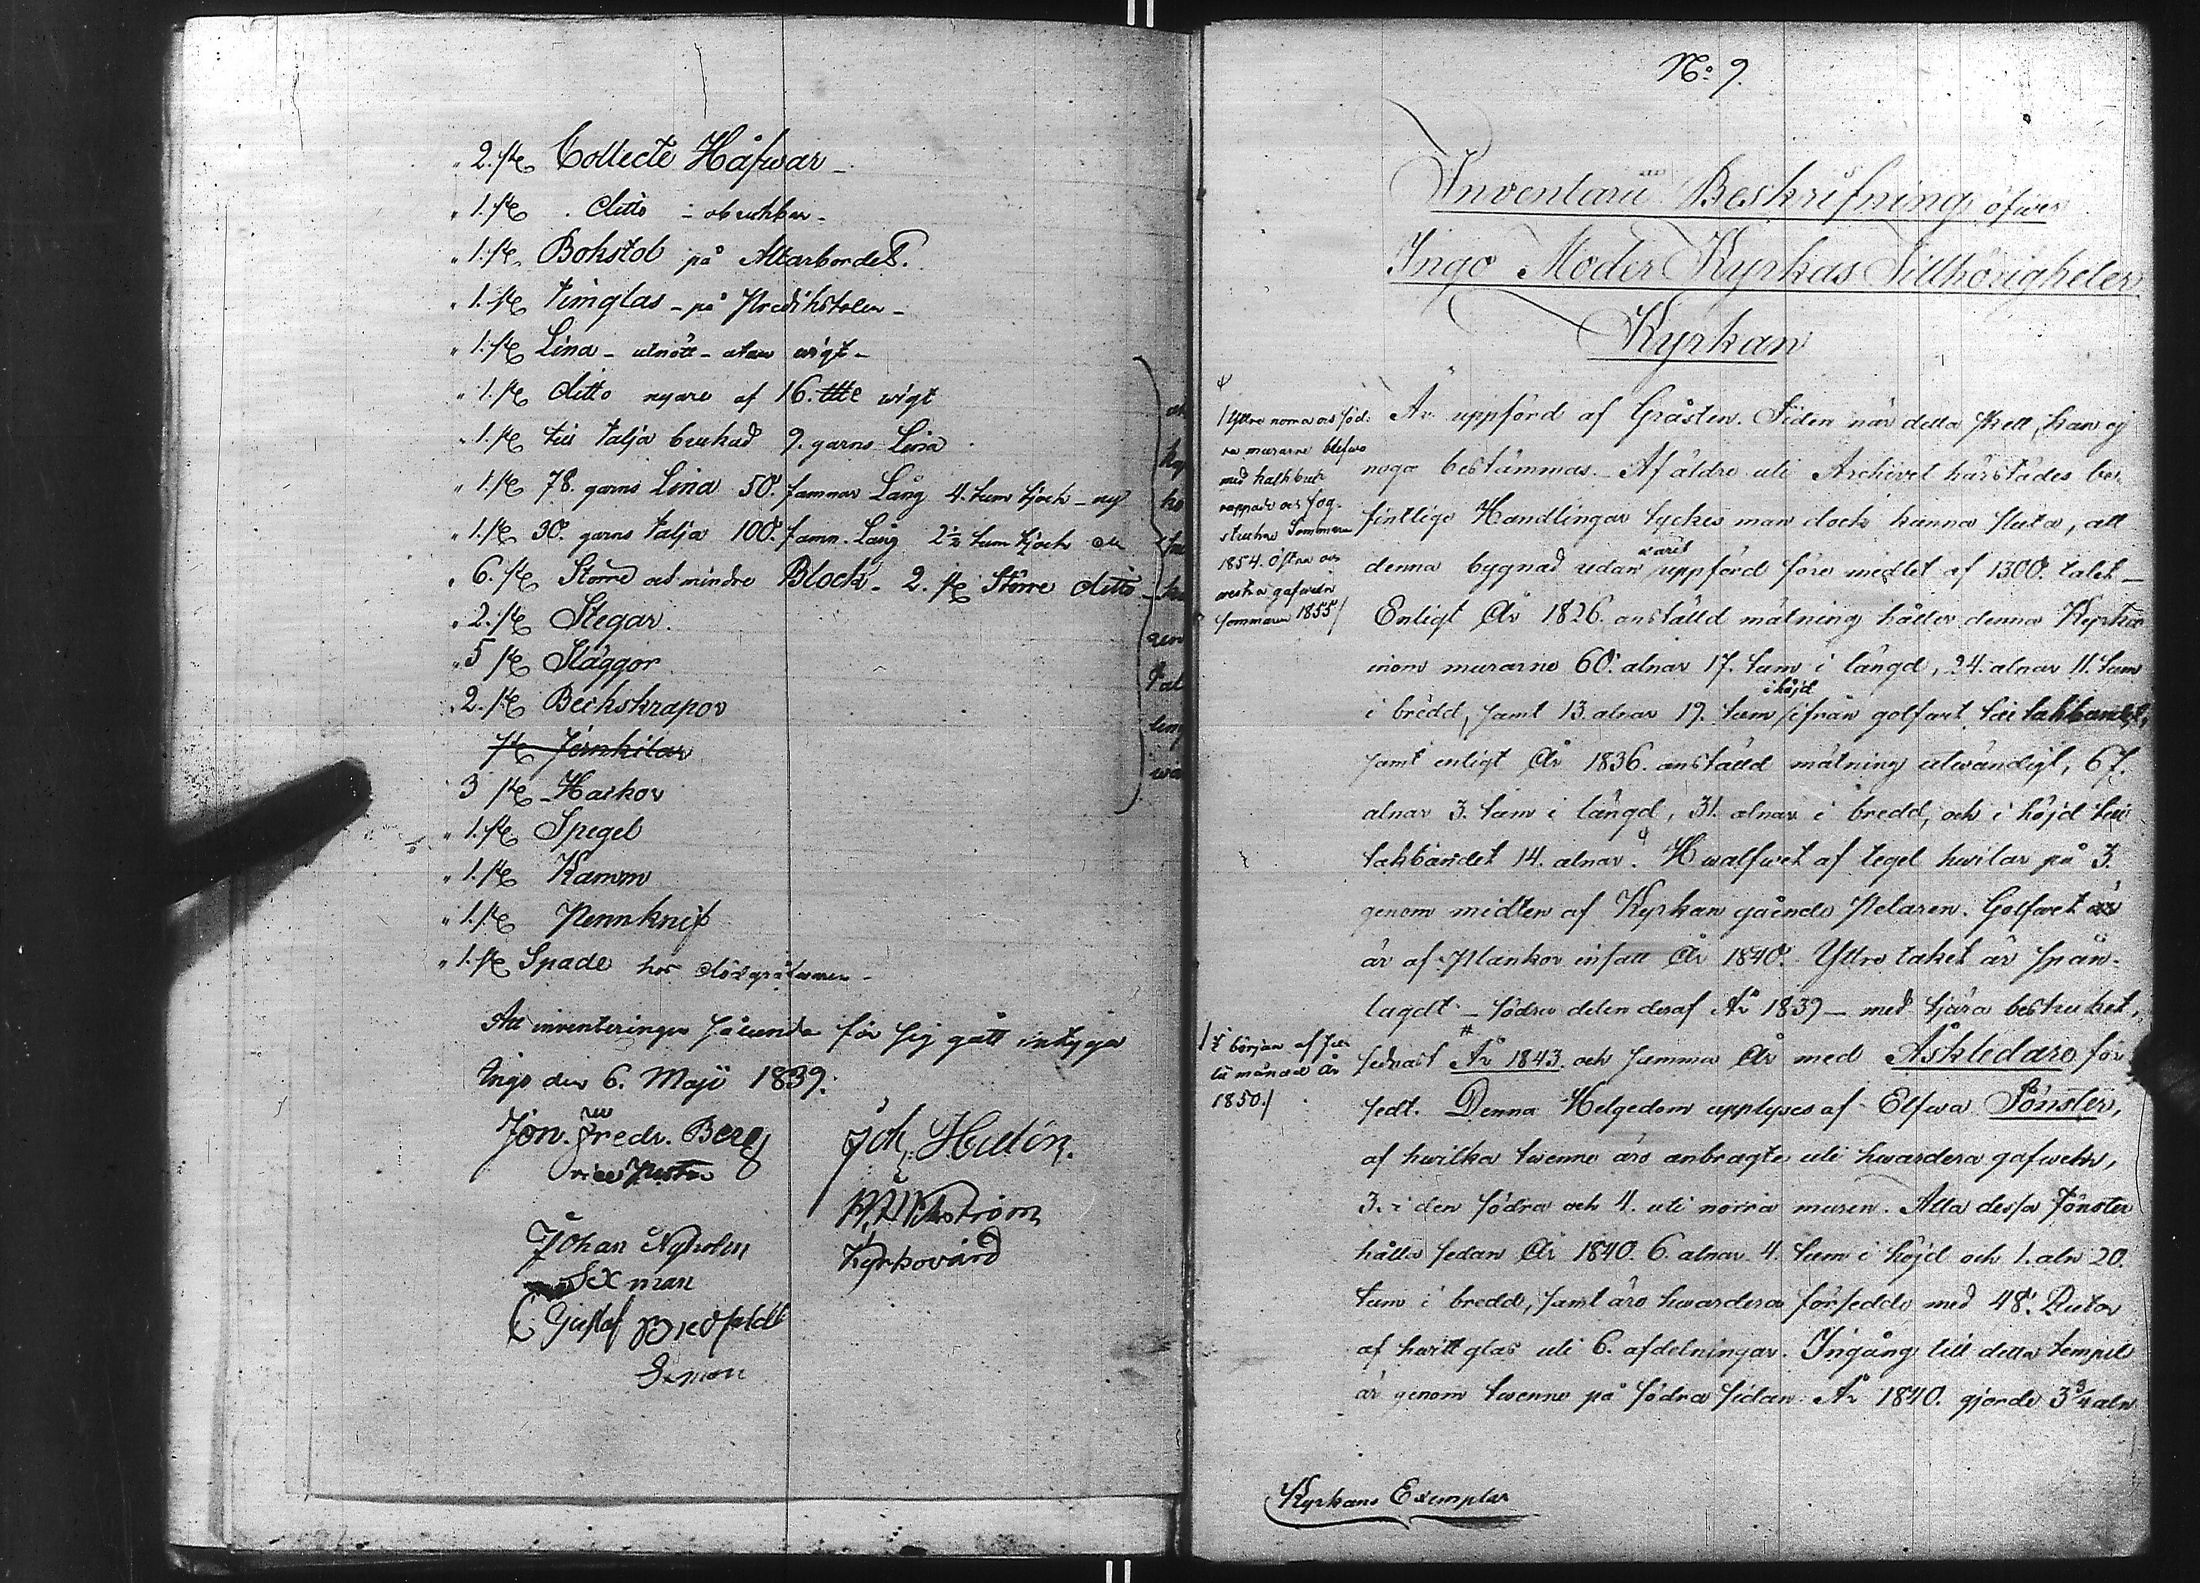 " 2. st. Collecte Håfwar –
" 1. st. . ditto – obrukbar –
" 1. st. Bokstol på Altarbordet.
" 1. st. timglas – på Predikstolen –
" 1. st. Lina – utnött – utan wigt –
" 1. st. ditto nyare af 16. wigt
" 1. st. till talja brukad 9. garns Lina
" 1. st. 78. garns Lina 50. famnar Lång 4. tum tjock – ny
" 1. st. 30. garns talja 100. famn. Lång 2½ tum tjock
" 6. st. Större och mindre Block – 2. st. Större ditto –
" 2. st. Stegar.
" 5 st. Släggor
" 2. st. Beckskrapor
st. Jernkilar
3 st. Hackor
" 1. st. Spegel
" 1. st. Kamm
" 1. st. Pennknif
" 1. st. Spade hos dödgräfwaren –
Att inventeringen sålunda för sig gått intyga
Ingo den 6. Maji 1839.
Jon. Fredr. Berg
vice Pastor
Joh. Hulén.
Wikström
Kyrkovärd
Johan Nyholm
Sexman
Gustaf Bredfeldt
Sexman
No. 9.
Inventarii Beskrifning öfwer
Ingo Moder Kyrkas Tillhörigheter
Kyrkan
Är uppförd af Gråsten. Tiden när detta skett, kan ej
noga bestämmas. Af äldre uti Archivet härstädes be-
fintliga Handlingar tyckes man dock kunna sluta, att
denna bygnad redan warit uppförd före medlet af 1300. talet –
Enligt År 1826. anställd mätning håller denna Kyrka
inom murarne 60. alnar 17. tum i längd, 24. alnar 11. tum
i bredd, samt 13. alnar 19. tum i höjd ifrån golfwet till takbandet,
samt enligt År 1836. anställd mätning utwändigt, 67.
alnar 3. tum i längd, 31. alnar i bredd, och i höjd till
takbandet 14. alnar. Hwalfwet af tegel hwilar på 3.
genom midten af Kyrkan gående Pelaren. Golfwet
är af Plankor insatt År 1840. Yttre taket är spån-
lagdt – södra delen deraf År 1839 – med tjära bestruket,
sednast År 1843. och samma År med Åskledare för-
sedt. Denna Helgedom upplyses af Elfwa Fönster,
af hwilka twenne äro anbragte uti hwardera gafweln,
3. i den södra och 4. uti norra muren. Alla dessa Fönster
hålla sedan År 1840. 6. alnar 4. tum i höjd och 1. aln 20.
tum i bredd, samt äro hwardera försedde med 48. Rutor
af hwitt glas uti 6. afdelningar. Ingång till detta tempel
är genom twenne på södra sidan År 1840. gjorde 3¾ aln
/ Yttre norra och söd-
ra murarne blefwo
med kalkbruk
rappade och fog-
strukne Sommaren
1854. Östra och
westra gafweln
sommaren 1855 /
/ I början af Juli
månad År
1850. /
Kyrkans Exemplar